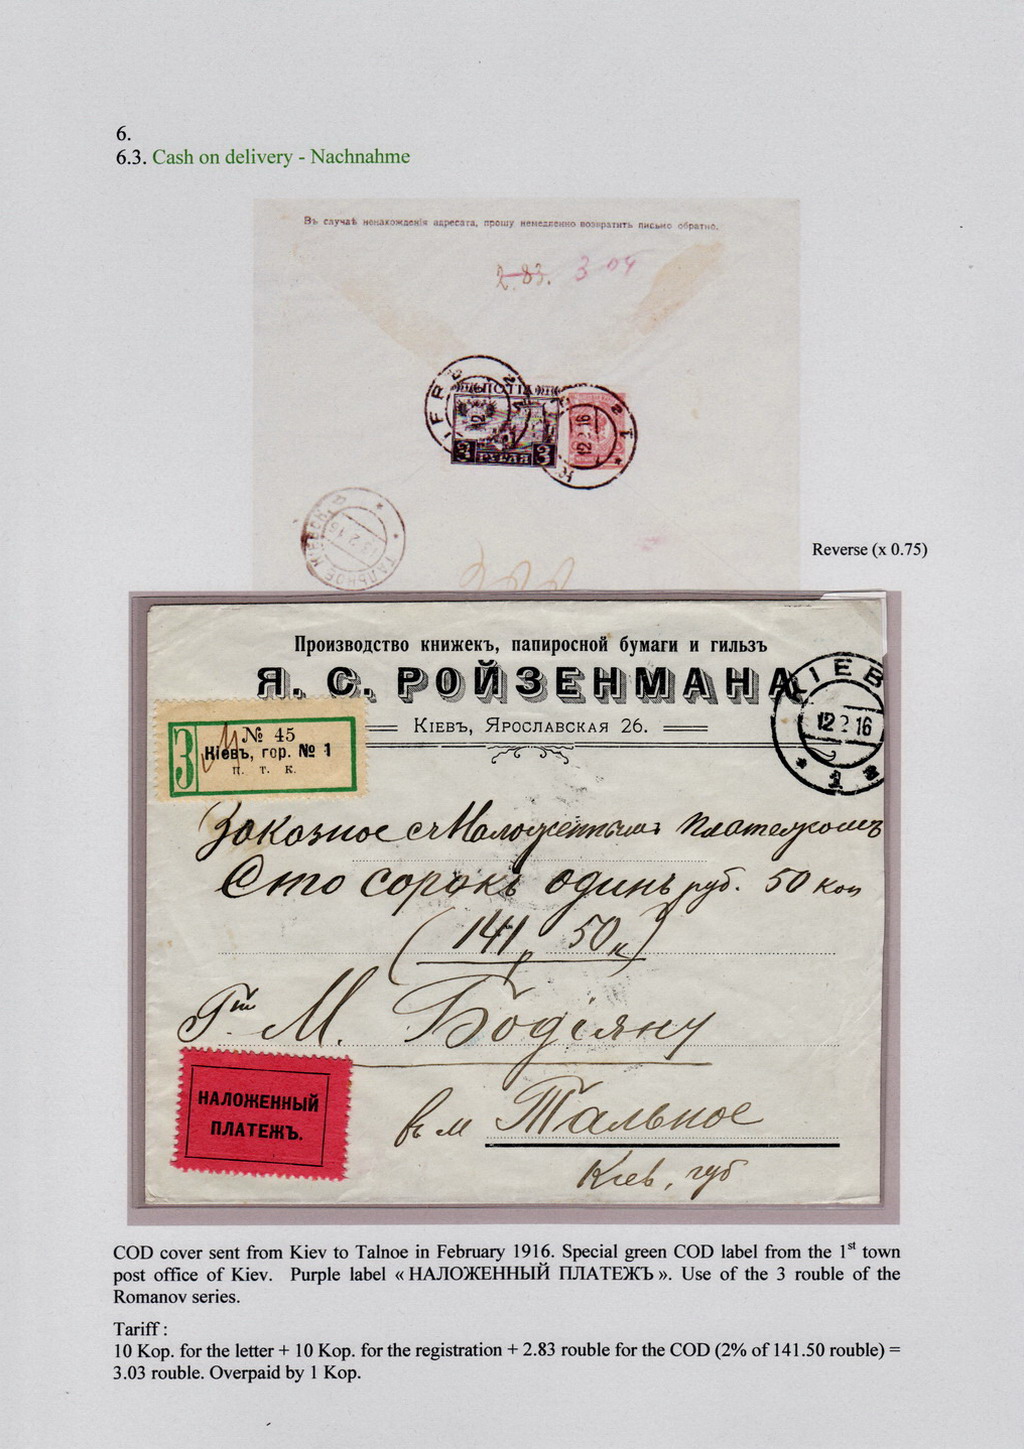 6.
6.3. Cash on delivery - Nachnahme
Въ случаѣ ненахожденія адресата, прошу немедленно возвратить письмо обратно.
2.83. 3 04
КІЕВЪ
12 2 16
3 РУБЛЯ 3
ТАЛЬНОЕ КІЕВСК.
Reverse (x 0.75)
Производство книжекъ, папиросной бумаги и гильзъ
Я. С. РОЙЗЕНМАНА
КІЕВЪ, ЯРОСЛАВСКАЯ 26.
КІЕВ
12 2 16
1
З
№ 45
Кіевъ, гор. № 1
п. т. к.
Заказное съ Наложеннымъ Платежомъ
Сто сорокъ одинъ руб. 50 коп
(141 р 50 к)
Гну М. Бодяну
НАЛОЖЕННЫЙ
ПЛАТЕЖЪ.
въ м Тальное
Кіев, губ
COD cover sent from Kiev to Talnoe in February 1916. Special green COD label from the 1st town
post office of Kiev. Purple label « НАЛОЖЕННЫЙ ПЛАТЕЖЪ ». Use of the 3 rouble of the
Romanov series.
Tariff :
10 Kop. for the letter + 10 Kop. for the registration + 2.83 rouble for the COD (2% of 141.50 rouble) =
3.03 rouble. Overpaid by 1 Kop.